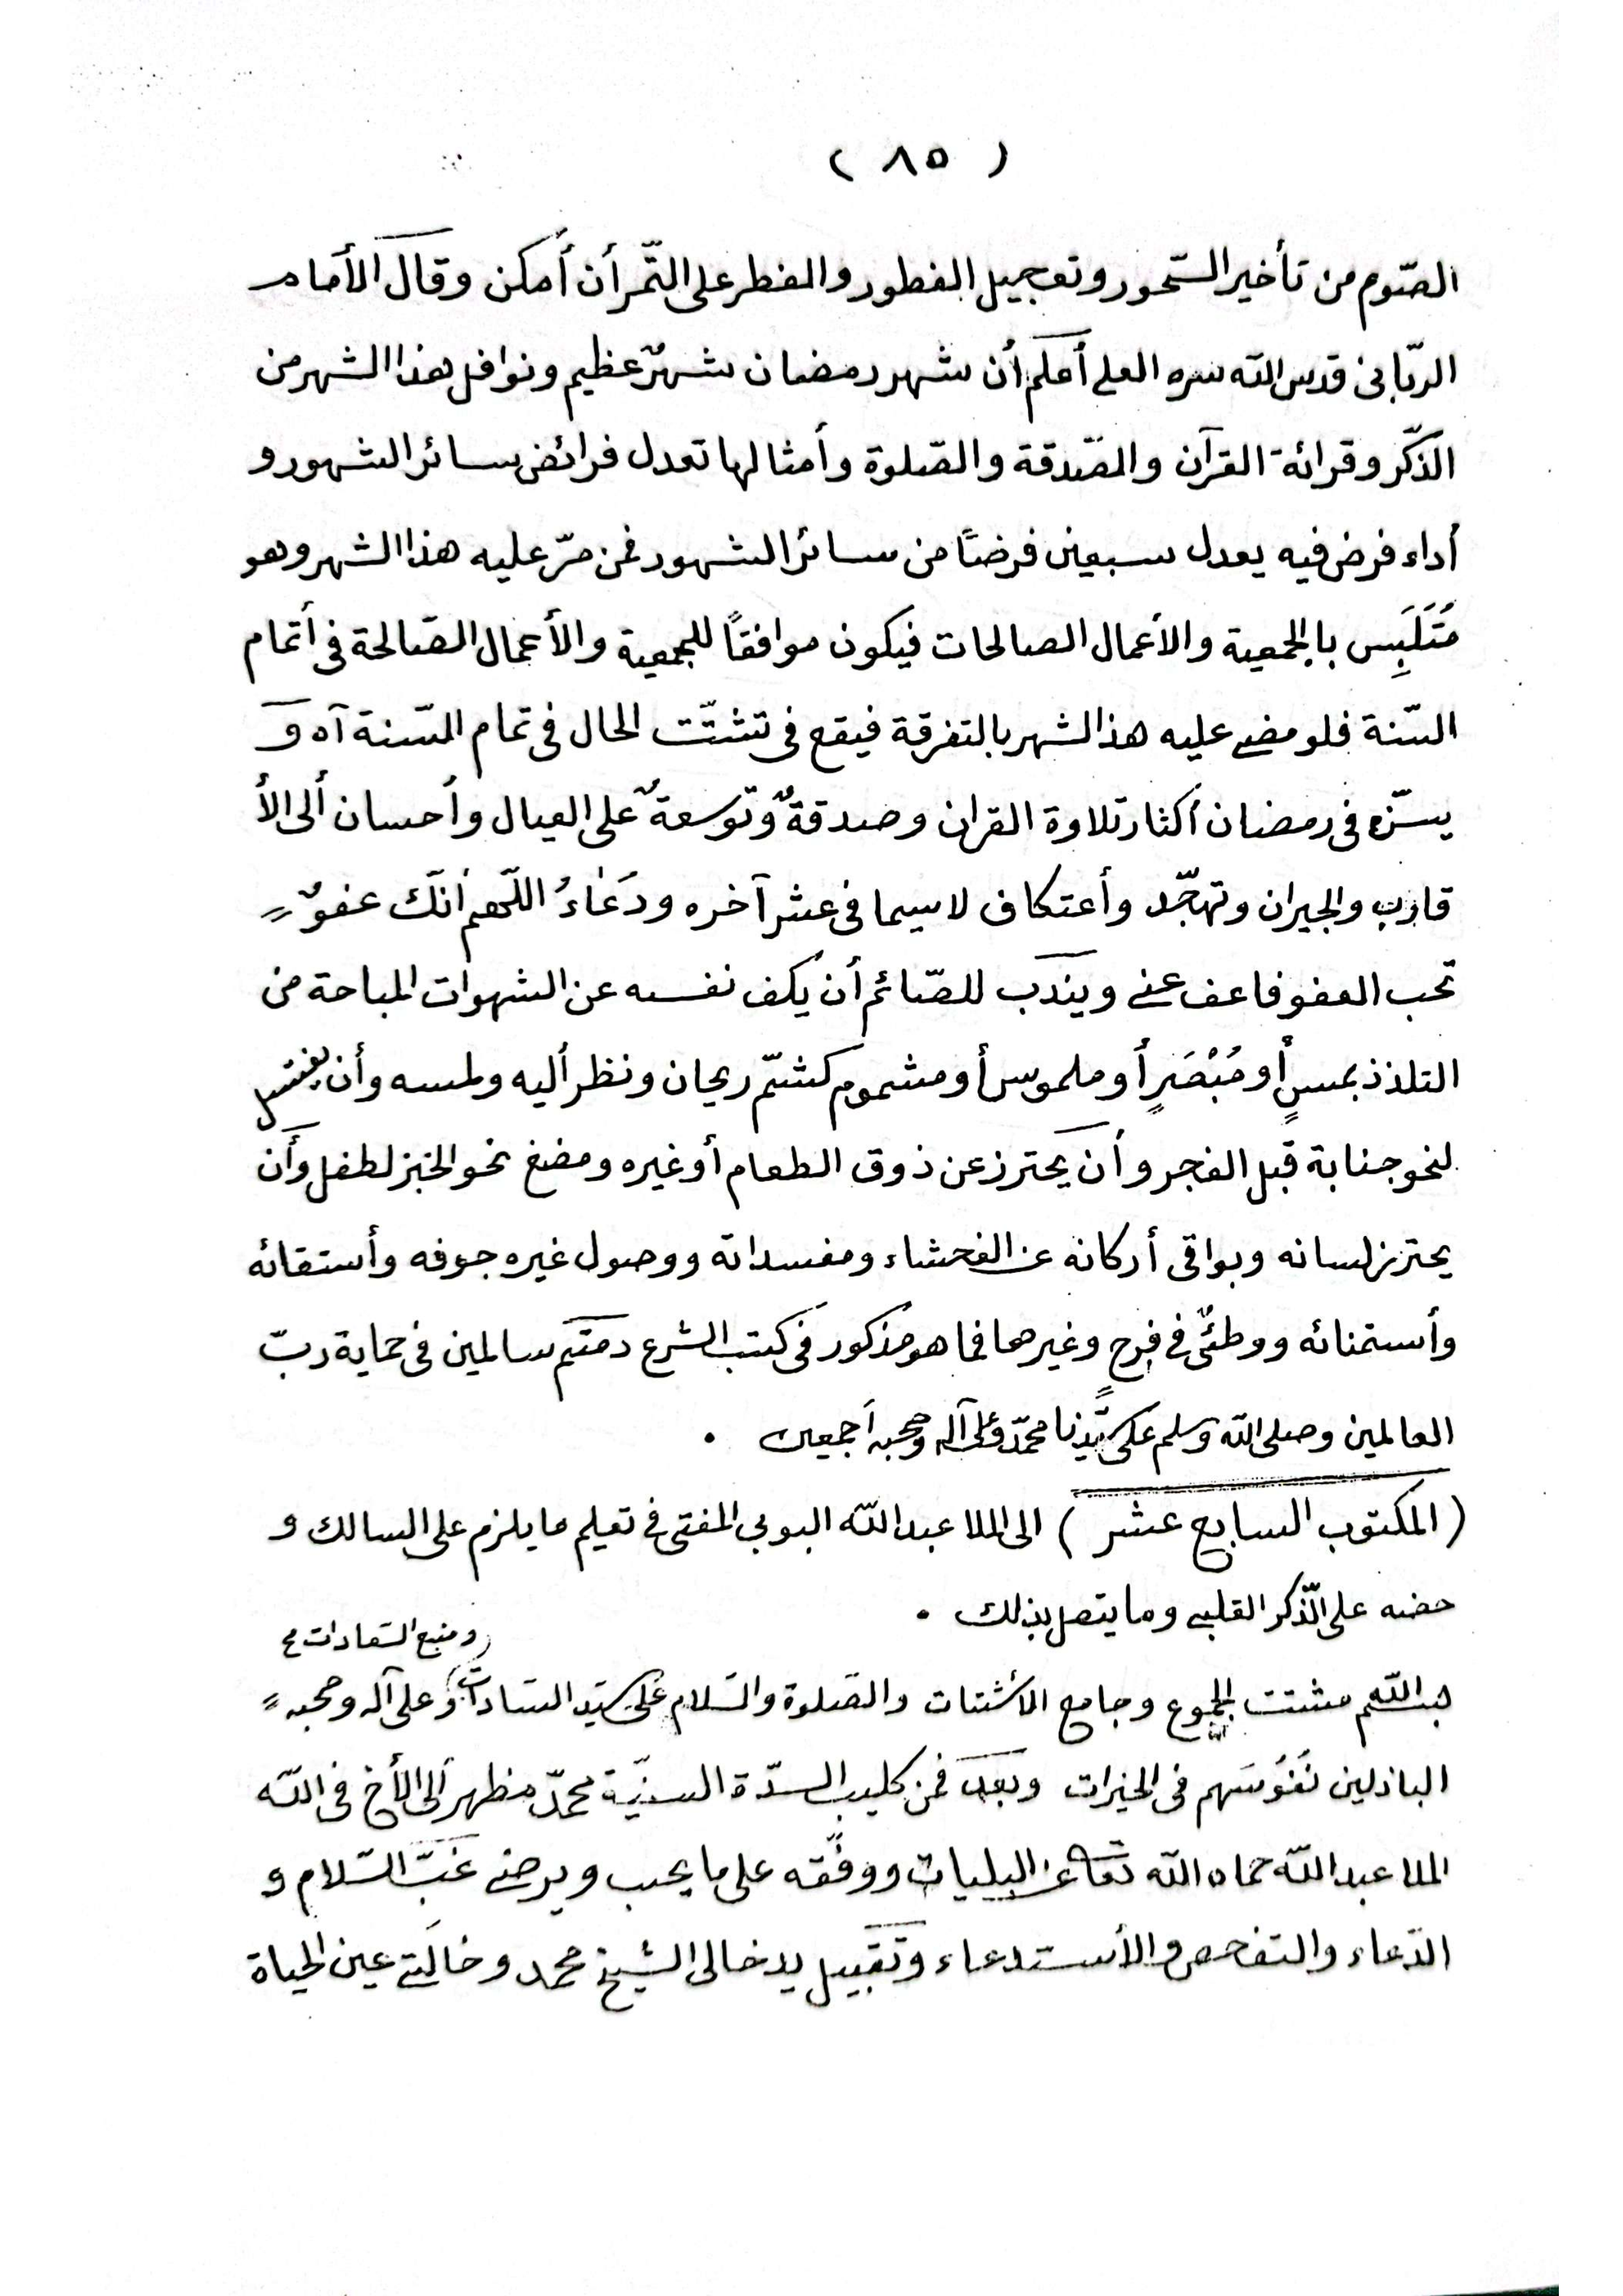 ( ٨٥ )
الصّوم من تأخير السّحور وتعجيل الفطور والفطر على التّمر أن أمكن وقال الأمام
الربّانى قدس الله سره العلى أعلم أن شهر رمضان شهرٌ عظيم ونوافل هذا الشهر من
الذّكر وقرائة القرآن والصّدقة والصّلوة وأمثالها تعدل فرائض سائر الشهور و
أداء فرض فيه يعدل سبعين فرضًا من سائر الشهور فمن مرّ عليه هذا الشهر وهو
مُتَلَبِس بالجمعية والأعمال الصالحات فيكون موافقًا للجمعية والأعمال الصّالحة فى أتمام
السّنة فلو مضى عليه هذ الشهر بالتفرقة فيقع فى تشتّت الحال فى تمام السّنة آه و
يسنّ فى رمضان أكثار تلاوة القران وصدقةٌ وتوسعةٌ على العيال وأحسان ألى الأ
قارب والجيران وتهجّد وأعتكاف لاسيما فى عشر آخره ودَعَاءُ اللّهم أنّك عفوٌ
تحب العفو فاعف عنى ويندب للصّائم أن يكف نفسه عن الشهوات المباحة من
التلذذ بمسٍ أو مُبْصَرٍ أو ملموس أو مشموم كشمّ ريحان ونظر أليه ولمسه وأن يغتسل
لنحو جنابة قبل الفجر وأن يحترز عن ذوق الطعام أو غيره ومضغ نحو الخبز لطفل وأن
يحترز لسانه وبواقى أركانه عن الفحشاء ومفسداته ووصول غيره جوفه وأستقائه
وأستمنائه ووطئٌ فى فرج وغيرها فما هو مذكور فى كتب الشرع دمتم سالمين فى حماية ربّ
العالمين وصلى الله وسلم على سيّدنا محمّد وعلى آله وصحبه أجمعين .
( المكتوب السابع عشر ) الى الملا عبد الله البوبى المفتى فى تعليم ما يلزم على السالك و
حضه على الذّكر القلبى وما يتصل بذلك .
ومنبع السّعادات
مشتت الجموع وجامع الأشتات والصّلوة والسّلام على سيّد السّادات وعلى آله وصحبه
الباذلين نُفُوسَهم فى الخيرات وبعد فمن كليب السدّة السنيّة محمّد مظهر ألى الأخ فى الله
الملا عبد الله حماه الله تعا عن البليات ووفّقه على ما يحب ويرضى غبّ السّلام و
الدّعاء والتفحص والأستدعاء وتقبيل يد خالى الشيخ محمد وخالتى عين الحياة